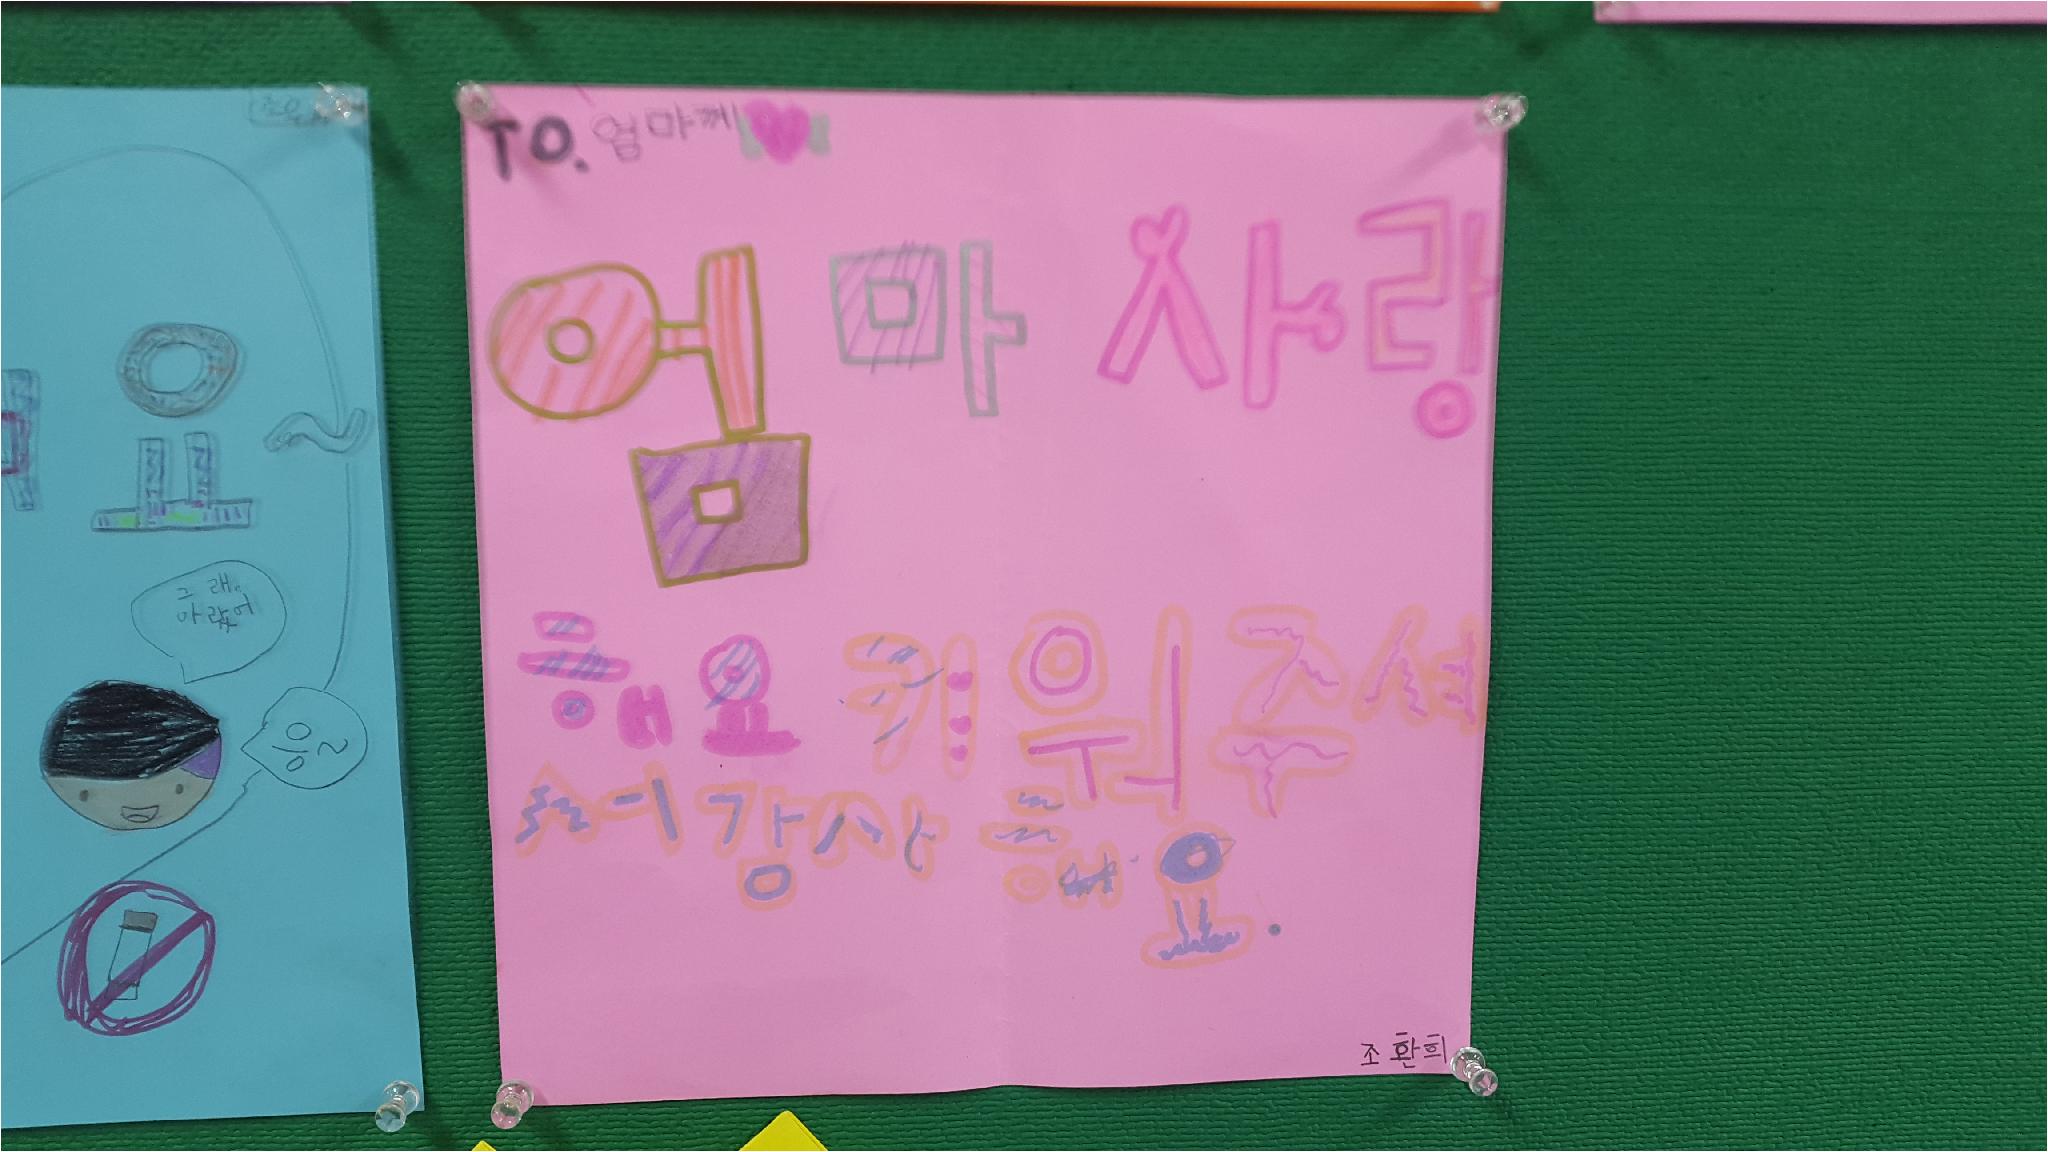 요
그래
아랐어
응~
TO. 엄마께
엄마 사랑
해요 키워주셔
셔 감사해요.
조환희